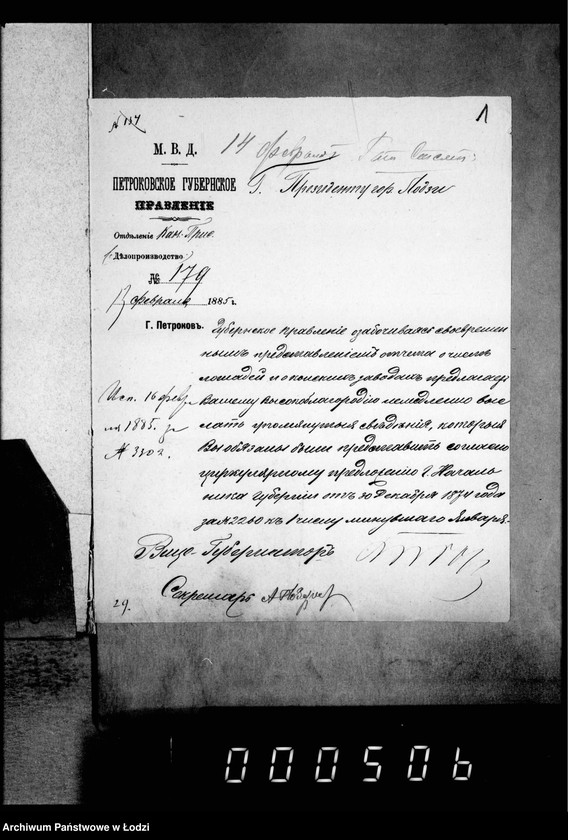 № 137
1
14 февраля
М. В. Д.
ПЕТРОКОВСКОЕ ГУБЕРНСКОЕ
ПРАВЛЕНІЕ
Г. Президенту гор Лодзи
Отдѣленіе
Дѣлопроизводство
№ 179
13 февраля 1885 г.
Г. Петроковъ.
Губернское правленіе озабочиваясь своевремен
нымъ представленіемъ отчета о числѣ
лошадей и о конскихъ заводахъ предлагаетъ
Вашему Высокоблагородію немедленно выс
лать упомянутыя свѣдѣнія, которыя
Вы обязаны были представить согласно
циркулярному предложенію Г. Началь
ника Губерніи отъ 30 Декабря 1874 года
за № 2260 къ 1 числу минувшаго Января.
Исп. 16 февра
ля 1885. за
№ 3302.
Вице-Губернаторъ
Секретарь
29.
000506
Archiwum Państwowe w Łodzi